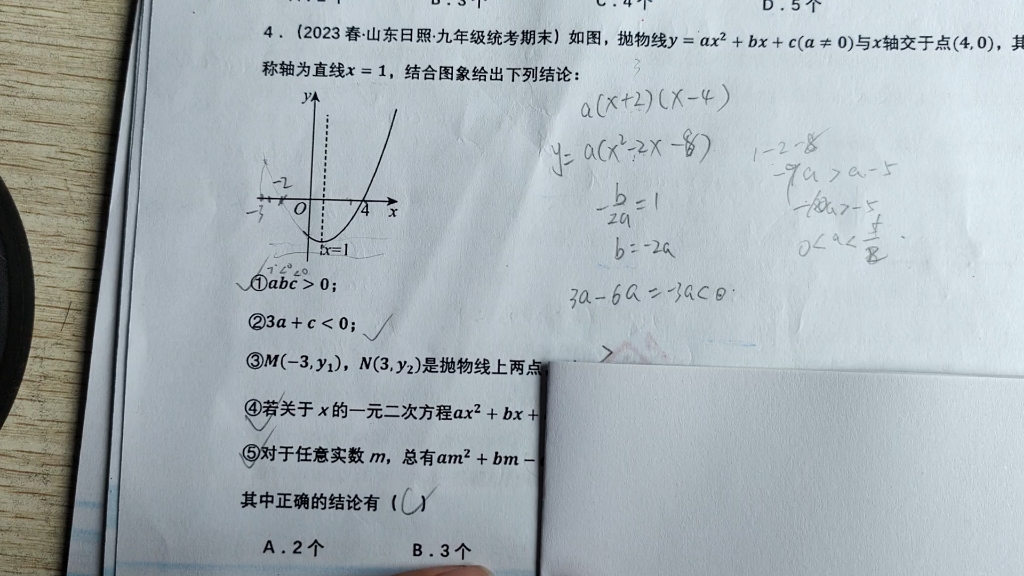 B.3个 C.4个 D.5个
4.(2023春·山东日照·九年级统考期末)如图,抛物线y=ax²+bx+c(a≠0)与x轴交于点(4,0),其
称轴为直线x=1,结合图象给出下列结论:
3
a(x+2)(x-4)
y
y=a(x²-2x-8)
1-2-8
-9a>a-5
-2
-3
O
4
x
-b/2a=1
-10a>-5
x=1
b=-2a
0<a<
①abc>0;
3a-6a=-3a<0
②3a+c<0;
③M(-3,y₁),N(3,y₂)是抛物线上两点
>
④若关于x的一元二次方程ax²+bx+
⑤对于任意实数m,总有am²+bm-
其中正确的结论有(C)
A.2个 B.3个